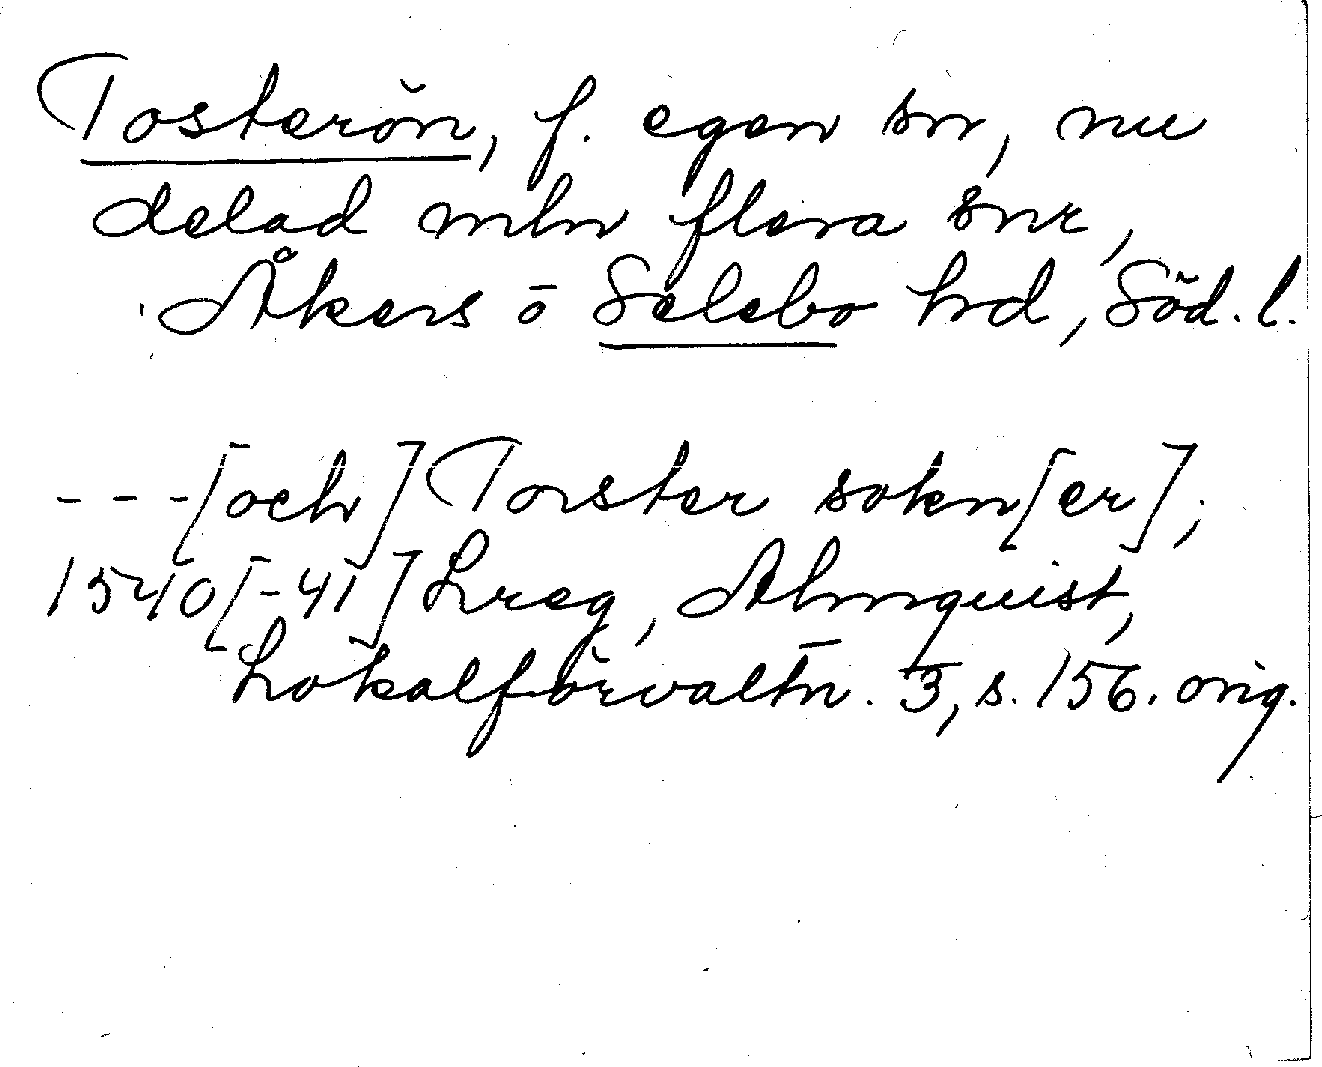 Tosterön, f. egen sn, nu
delad mln flera snr,
Åkers o Selebo hd, Söd. l.
---[och] Torster sokn[er];
1540[-41] Lreg, Almquist,
Lokalförvaltn. 3, s. 156. orig.